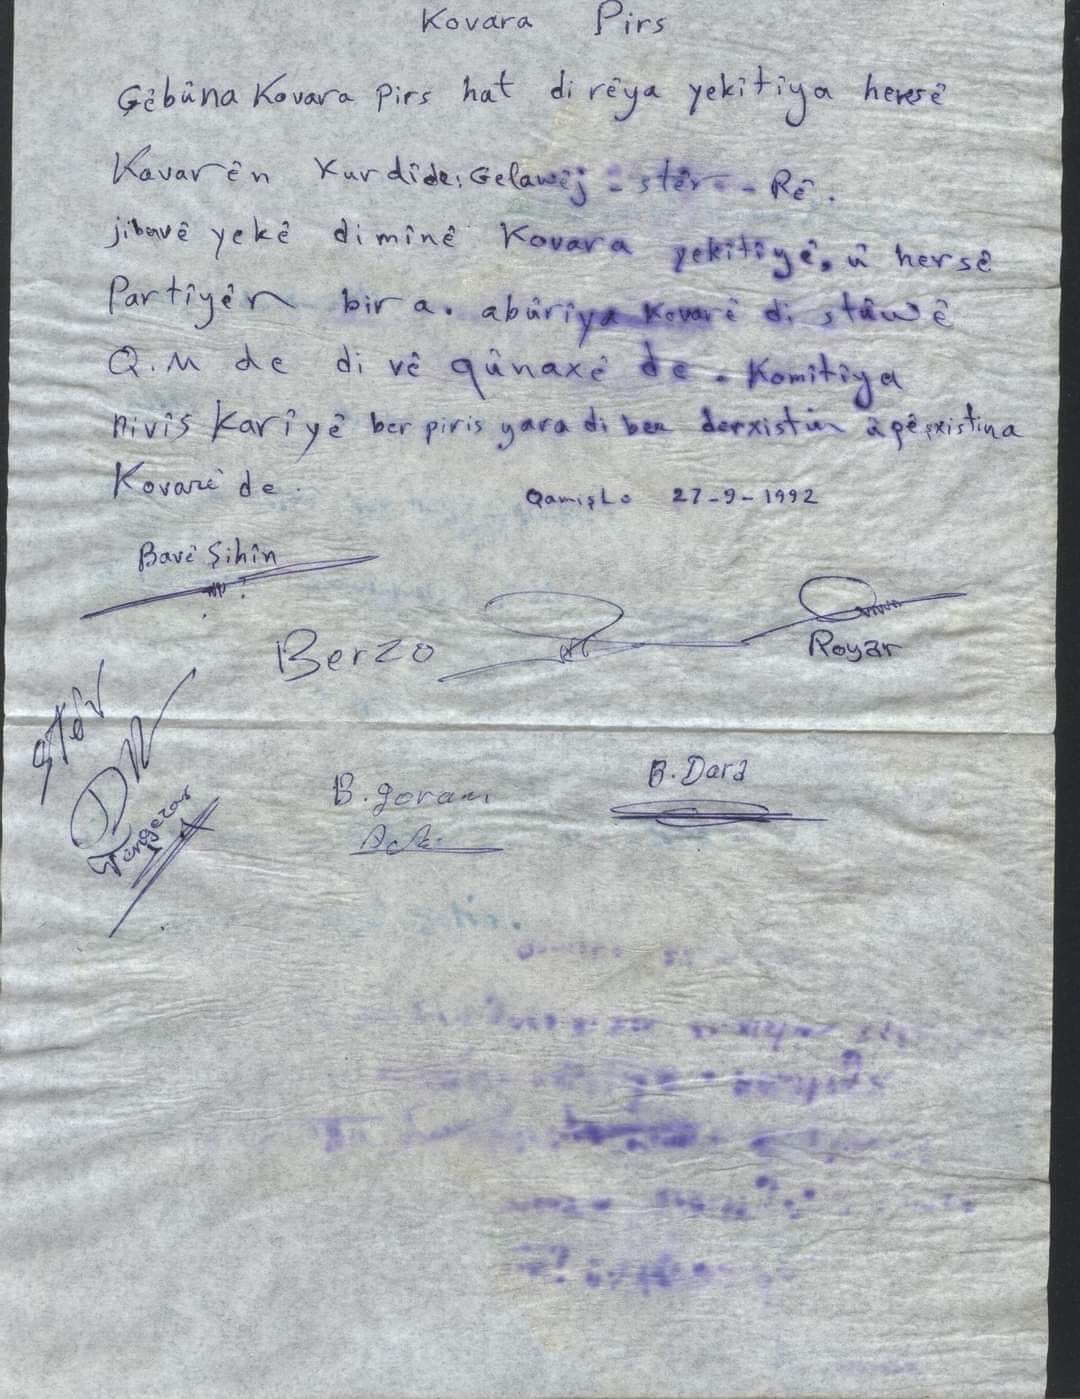 Kovara Pirs
Çêbûna Kovara Pirs hat di rêya yekîtîya hersê
Kovarên Kurdîde: Gelawêj - stêr - Rê.
jibavê yekê dimînê Kovara yekîtîyê. û hersê
Partîyên bira. abûrîya Kovarê di stûwê
Q.M de di vê qûnaxê de. Komîtîya
nivîs karîyê ber piris yara di ber derxistin û pêşxistina
Kovarê de.
Qamişlo 27-9-1992
Bavê Şihîn
Berzo
Royar
stêr
Tengezar
B. goran
B. Dara